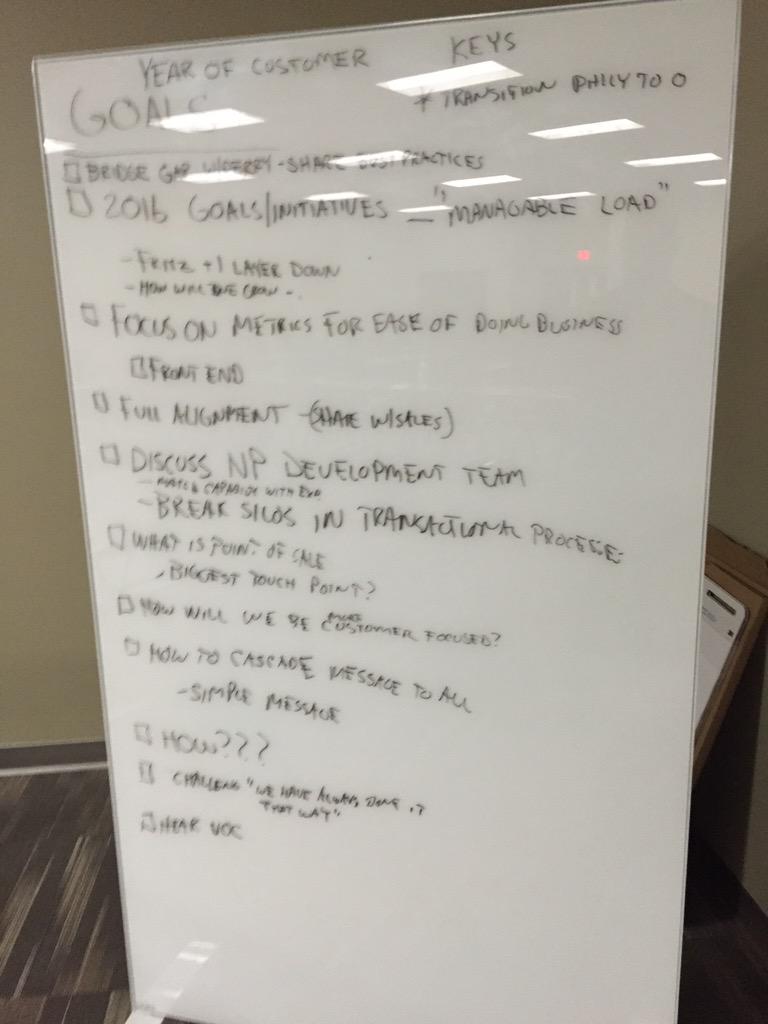 YEAR OF CUSTOMER
KEYS
* TRANSITION PHILY TO O
GOALS
BRIDGE GAP - SHARE BEST PRACTICES
2016 GOALS/INITIATIVES — "MANAGABLE LOAD"
- +1 LAYER DOWN
- HOW WILL WE GROW -
FOCUS ON METRICS FOR EASE OF DOING BUSINESS
FRONT END
FULL ALIGNMENT - (SHARE W/SALES)
DISCUSS NP DEVELOPMENT TEAM
- WITH
- BREAK SILOS IN TRANSACTIONAL PROCESSES
WHAT IS POINT OF SALE
BIGGEST TOUCH POINT?
HOW WILL WE BE MORE CUSTOMER FOCUSED?
HOW TO CASCADE MESSAGE TO ALL
- SIMPLE MESSAGE
HOW???
CHALLENG "WE HAVE ALWAYS DONE IT
THAT WAY"
HEAR VOC